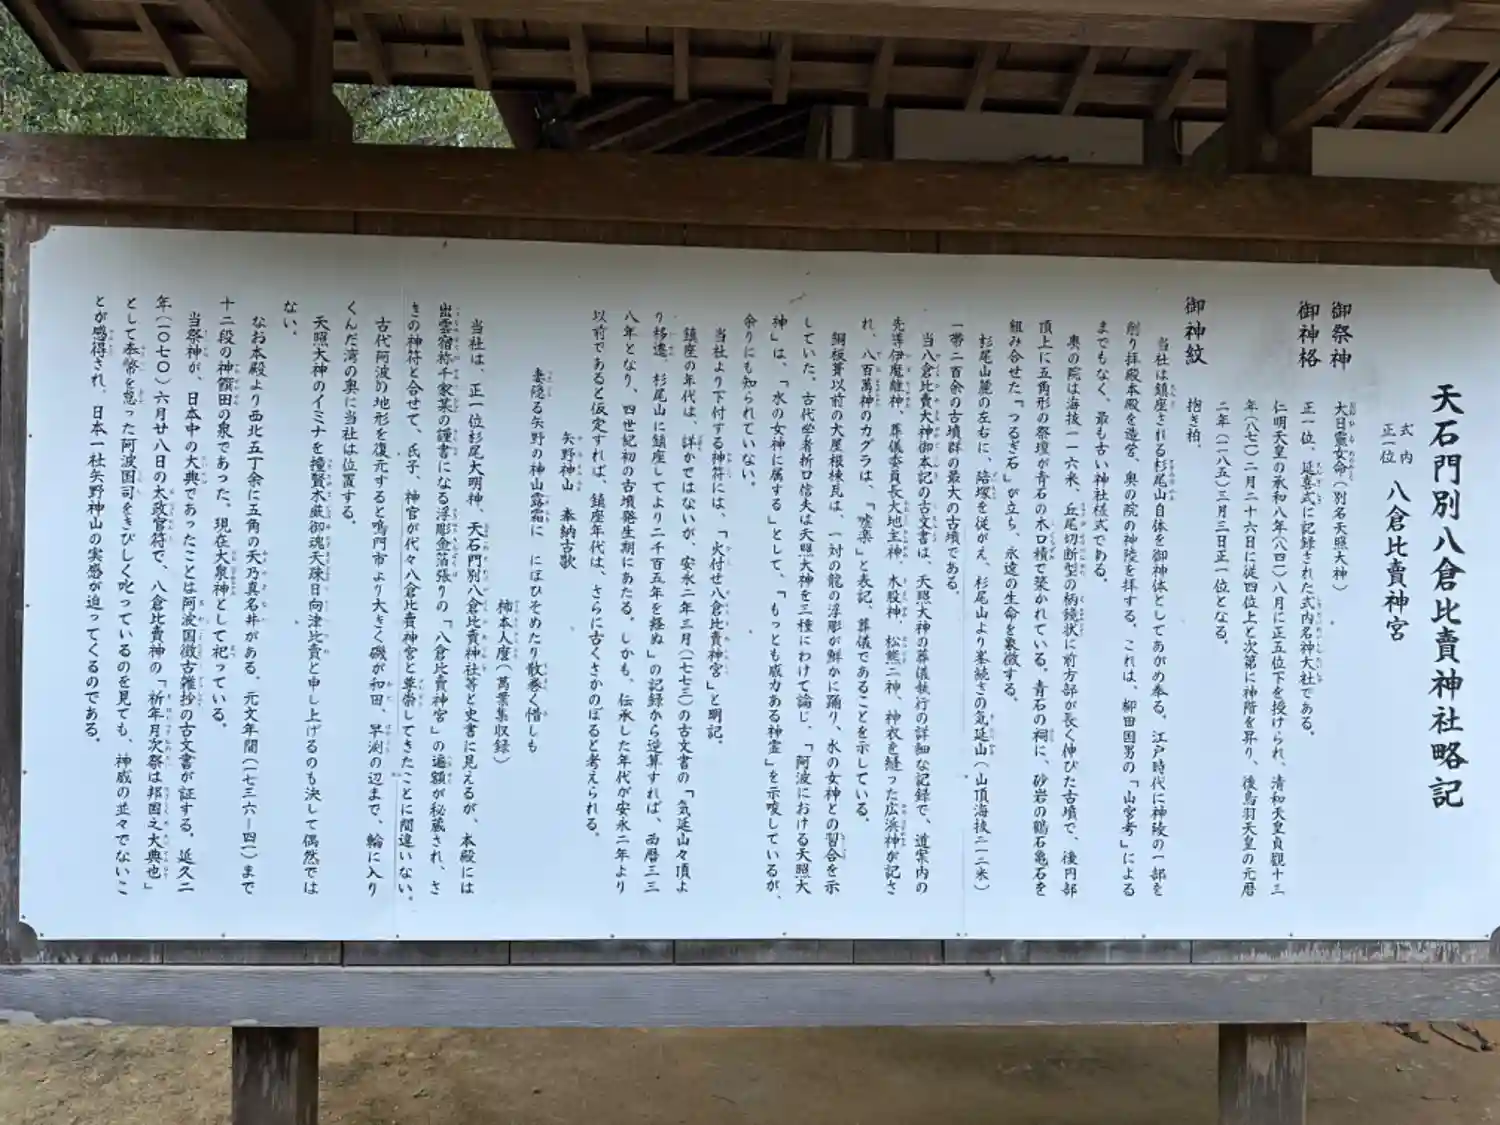 天石門別八倉比賣神社略記
式内
正一位
八倉比賣神宮
御祭神　大日孁女命（別名天照大神）
御神格　正一位、延喜式に記録された式内名神大社である。
仁明天皇の承和八年（八四一）八月に正五位下を授けられ、清和天皇貞観十三
年（八七一）二月二十六日に従四位上と次第に神階を昇り、後鳥羽天皇の元暦
二年（一一八五）三月三日正一位となる。
御神紋　抱き柏、
当社は鎮座される杉尾山自体を御神体としてあがめ奉る。江戸時代に神陵の一部を
削り拝殿本殿を造営、奥の院の神陵を拝する。これは、柳田国男の「山宮考」による
までもなく、最も古い神社様式である。
奥の院は海抜一一六米、丘尾切断型の柄鏡状に前方部が長く伸びた古墳で、後円部
頂上に五角形の祭壇が青石の木口積で築かれている。青石の祠に、砂岩の鶴石亀石を
組み合せた「つるぎ石」が立ち、永遠の生命を象徴する。
杉尾山麓の左右に、陪塚を従がえ、杉尾山より峯続きの気延山（山頂海抜二一二米）
一帯二百余の古墳群の最大の古墳である。
当八倉比賣大神御本記の古文書は、天照大神の葬儀執行の詳細な記録で、道案内の
先導伊魔離神、葬儀委員長大地主神、木股神、松熊二神、神衣を縫った広浜神が記さ
れ、八百萬神のカグラは、「嘘楽」と表記、葬儀であることを示している。
銅板葺以前の大屋根棟瓦は、一対の龍の浮彫が鮮かに踊り、水の女神との習合を示
していた。古代学者折口信夫は天照大神を三種にわけて論じ、「阿波における天照大
神」は、「水の女神に属する」として、「もっとも威力ある神霊」を示唆しているが、
余りにも知られていない。
当社より下付する神符には、「火付せ八倉比賣神宮」と明記。
鎮座の年代は、詳かではないが、安永二年三月（一七七三）の古文書の「気延山々頂よ
り移遷、杉尾山に鎮座してより二千百五年を経ぬ」の記録から逆算すれば、西暦三三
八年となり、四世紀初の古墳発生期にあたる。しかも、伝承した年代が安永二年より
以前であると仮定すれば、鎮座年代は、さらに古くさかのぼると考えられる。
矢野神山　奉納古歌
妻隠る矢野の神山露霜に　にほひそめたり散巻く惜しも
柿本人麿（萬葉集収録）
当社は、正一位杉尾大明神、天石門別八倉比賣神社等と史書に見えるが、本殿には
出雲宿祢千家某の謹書になる浮彫金箔張りの「八倉比賣神宮」の遍額が秘蔵され、さ
きの神符と合せて、氏子、神官が代々八倉比賣神宮と尊崇してきたことに間違いない。
古代阿波の地形を復元すると鳴門市より大きく磯が和田、早渕の辺まで、輪に入り
くんだ湾の奥に当社は位置する。
天照大神のイミナを撞賢木厳御魂天疎日向津比賣と申し上げるのも決して偶然では
ない。
なお本殿より西北五丁余に五角の天乃真名井がある。元文年間（一七三六―四一）まで
十二段の神饌田の泉であった。現在大泉神として祀っている。
当祭神が、日本中の大典であったことは阿波国徴古雑抄の古文書が証する。延久二
年（一〇七〇）六月廿八日の太政官符で、八倉比賣神の「祈年月次祭は邦国之大典也」
として奉幣を怠った阿波国司をきびしく叱っているのを見ても、神威の並々でないこ
とが感得され、日本一社矢野神山の実感が迫ってくるのである。